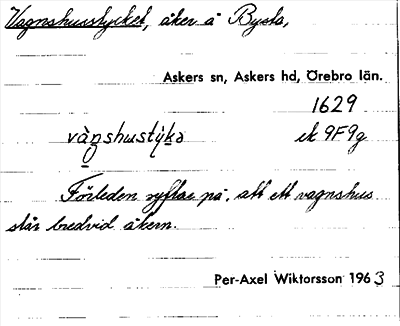 Vagnshusstycket, åker å Bysta,
Askers sn, Askers hd, Örebro län.
1629
vàṉshustýḵə ek 9F9g
Förleden syftar på, att ett vagnshus
står bredvid åkern.
Per-Axel Wiktorsson 1963